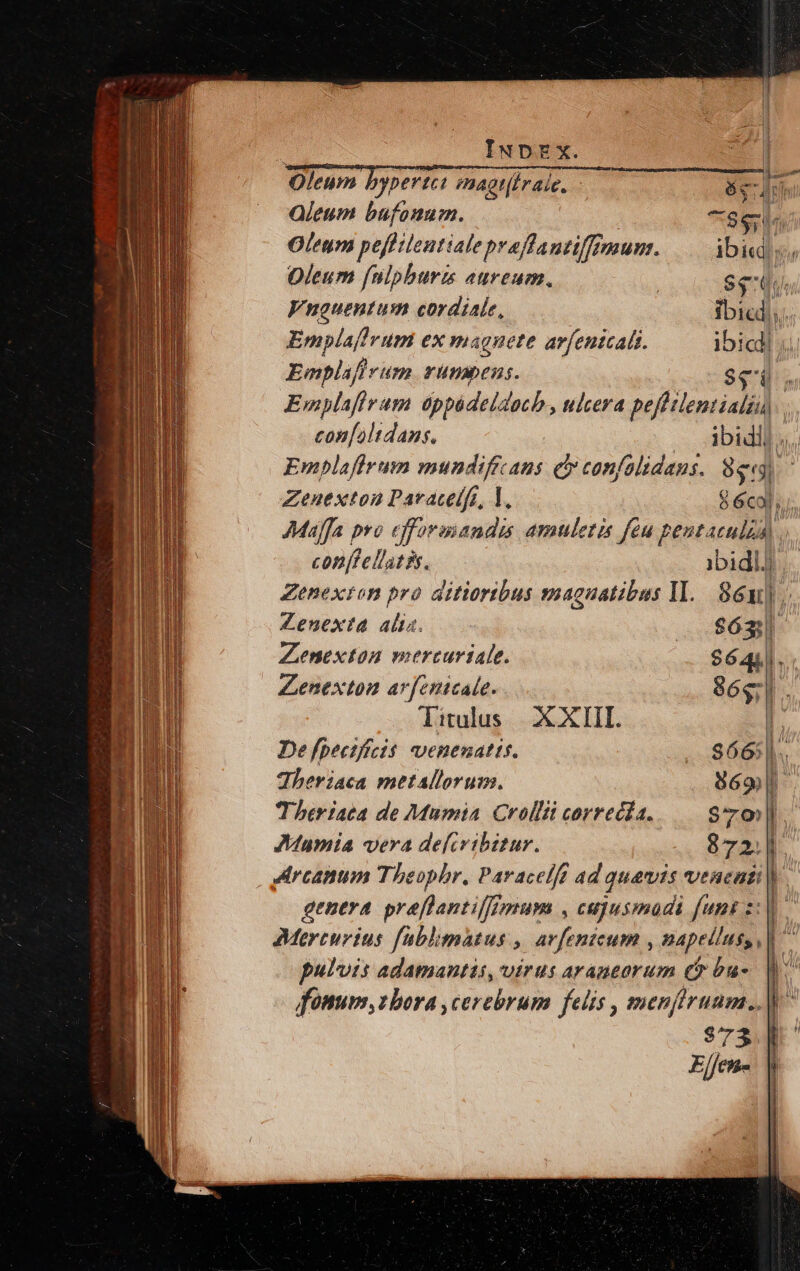 INDEX.
Oleum hyperici magiſtrale.
Oleum bufonum.
Oleum peſtilentiale præſtantiſſimum. ibid
Oleum ſulphuris aureum.
Vnguentum cordiale, ibid
Emplaſtrum ex magnete arſenicali. ibid
Emplaſtrum rumpens.
Emplaſtrum oppodeldoch, ulcera peſtilentialia
conſolidans. ibid
Emplaſtrum mundificans & conſolidans.
Zenexton Paracelſi, I. 860
Maſſa pro efformandis amuletis ſeu pentaculis
conſtellatis. ibid
Zenexton pro ditioribus magnatibus II. 861
Zenexta alia. 863
Zenexton mercuriale. 864
Zenexton arſenicale. 865
Titulus XXIII.
De ſpecificis venenatis. 866
Theriaca metallorum. 869
Theriaca de Mumia Crollii correcta. 870
Mumia vera deſcribitur. 872
Arcanum Theophr. Paracelſi ad quævis veneni
genera præſtantiſſimum, cujusmodi ſunt:
Mercurius ſublimatus, arſenicum, napellus,
pulvis adamantis, virus araneorum & bu-
fonum, thora, cerebrum felis, menſtruum.
873
Eſſen-